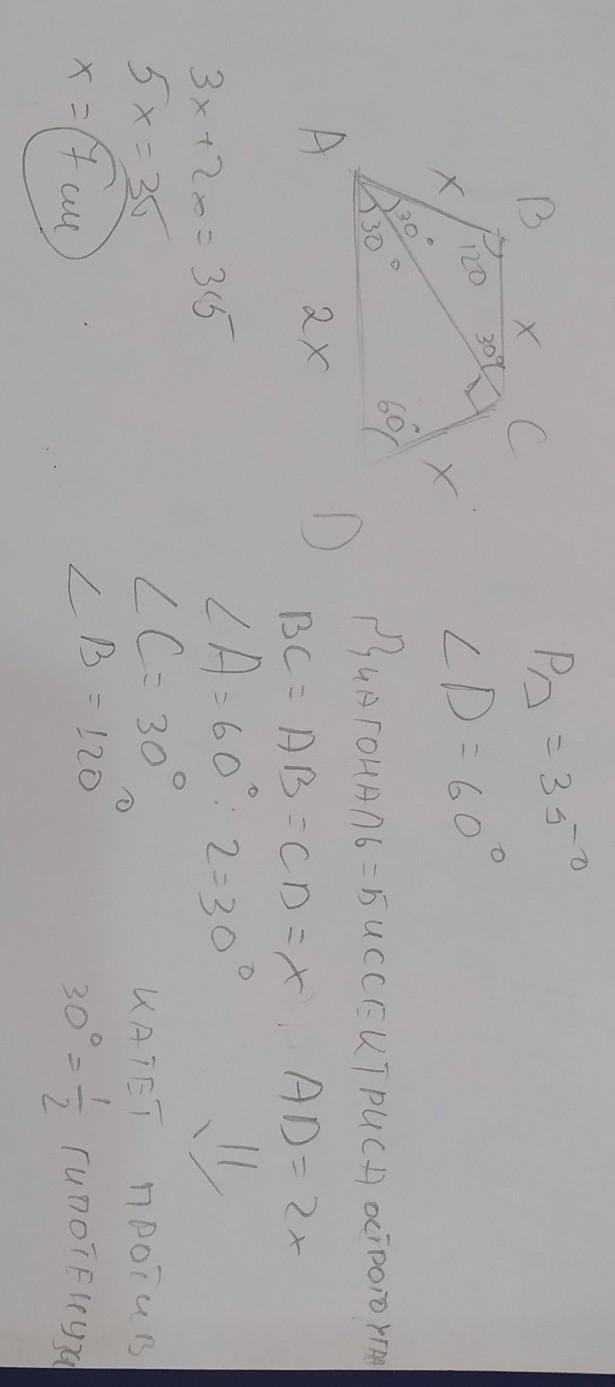 B
C
A
D
x
x
x
2x
120
30°
30°
30°
60°
P△ = 35°
∠D = 60°
Диагональ = биссектриса острого угла
BC = AB = CD = x, AD = 2x
∠A = 60° : 2 = 30°
∠C = 30°
∠B = 120°
⇓
КАТЕТ ПРОТИВ
30° = 1/2 ГИПОТЕНУЗЫ
3x + 2x = 35
5x = 35
x = 7 см